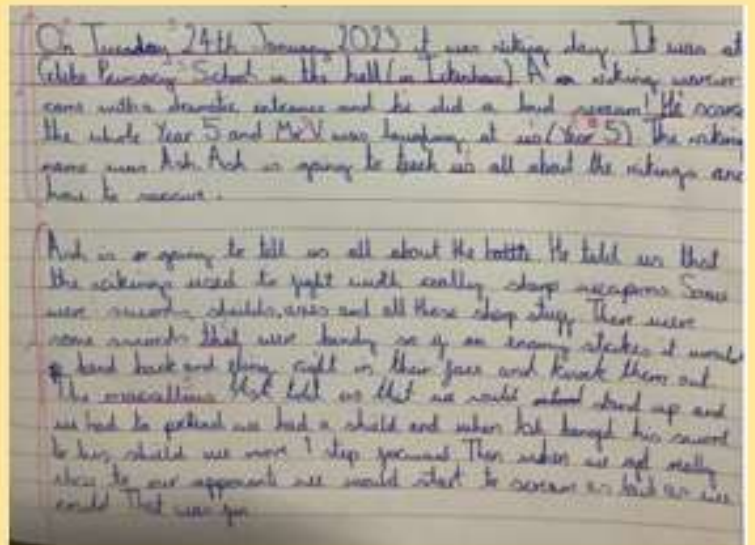 On Tuesday 24th January 2023 it was viking day. It was at
Glebe Primary School in the hall (in Ickenham) A viking warrior
came with a dramatic entrance and he did a loud scream! He scare
the whole Year 5 and Mr V was laughing at us (Year 5) The viking
name was Ash. Ash is going to teach us all about the vikings and
how to
Ash is going to tell us all about the battle He told us that
the vikings used to fight with really sharp weapons Some
were swords, shields, axes and all these sharp stuff. There were
some swords that were bendy so if an enemy it would
bend back and right in their face and knock them out
The Ash told us that we would stand up and
we had to pretend we had a shield and when Ash banged his sword
to his shield we move 1 step forward Then when we got really
close to our opponents we would start to scream as loud as we
could That was fun